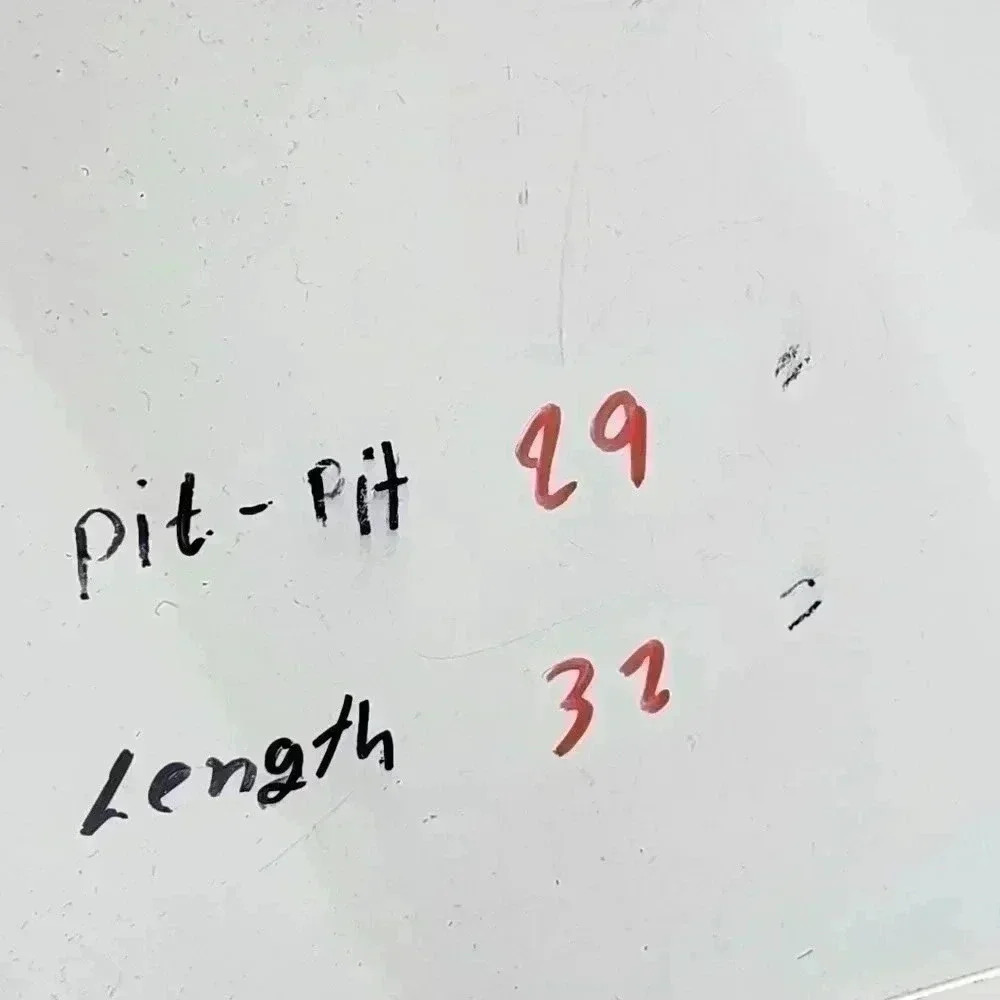 Pit - Pit 29 "
Length 32 "